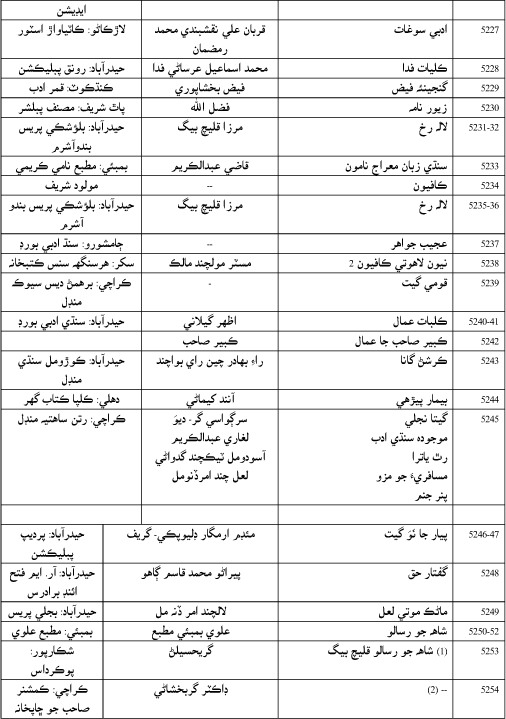 ايڊيشن
5227 ادبي سوغات قربان علي نقشبندي محمد لاڙڪاڻو: ڪاٺياواڙ اسٽور
رمضمان
5228 ڪليات فدا محمد اسماعيل عرساڻي فدا حيدرآباد: رونق پبليڪشن
5229 گنجينئه فيض فيض بخشاپوري ڪنڌڪوٽ: قمر ادب
5230 زيور نامہ فضل الله پاٽ شريف: مصنف پبلشر
5231-32 لالہ رخ مرزا قليچ بيگ حيدرآباد: بلؤشڪي پريس
بندوآشرم
5233 سنڌي زبان معراج نامون قاضي عبدالڪريم بمبئي: مطبع نامي ڪريمي
5234 ڪافيون -- مولود شريف
5235-36 لالہ رخ مرزا قليچ بيگ حيدرآباد: بلؤشڪي پريس بندو
آشرم
5237 عجيب جواهر -- ڄامشورو: سنڌ ادبي بورڊ
5238 نيون لاهوتي ڪافيون 2 مسٽر مولچند مالڪ سکر: هرسنگهہ سنس ڪتبخانہ
5239 قومي گيت - ڪراچي: برهمڻ ديس سيوڪ
منڊل
5240-41 ڪلبات عمال اظهر گيلاني حيدرآباد: سنڌي ادبي بورڊ
5242 ڪبير صاحب جا عمال ڪبير صاحب
5243 ڪرشڻ گانا راءِ بهادر چين راي بواچند حيدرآباد: ڪوڙومل سنڌي
منڊل
5244 بيمار پيڙهي آنند کيماڻي دهلي: ڪلپا ڪتاب گهر
5245 گيتا نجلي سرڳواسي گر- ديوَ ڪراچي: رتن ساهتيہ منڊل
موجوده سنڌي ادب لغاري عبدالڪريم
رٿ ياترا آسودومل ٽيڪچند گدواڻي
مسافريءَ جو مزو لعل چند امرڏنومل
پنر جنم
5246-47 پيار جا نَوَ گيت مئڊم ارمگار ڊليوپڪي- گريف حيدرآباد: پرديپ
پبليڪشن
5248 گفتار حق پيراڻو محمد قاسم ڳاهو حيدرآباد: آر. ايم فتح
ائنڊ برادرس
5249 ماڻڪ موتي لعل لالچند امر ڏنہ مل حيدرآباد: بجلي پريس
5250-52 شاهہ جو رسالو علوي بمبئي مطبع بمبئي: مطبع علوي
5253 (1) شاهہ جو رسالو قليچ بيگ گربحسيلڻ شڪارپور:
پوڪرداس
5254 (2) -- ڊاڪٽر گربخشاڻي ڪراچي: ڪمشنر
صاحب جو ڇاپخانہ